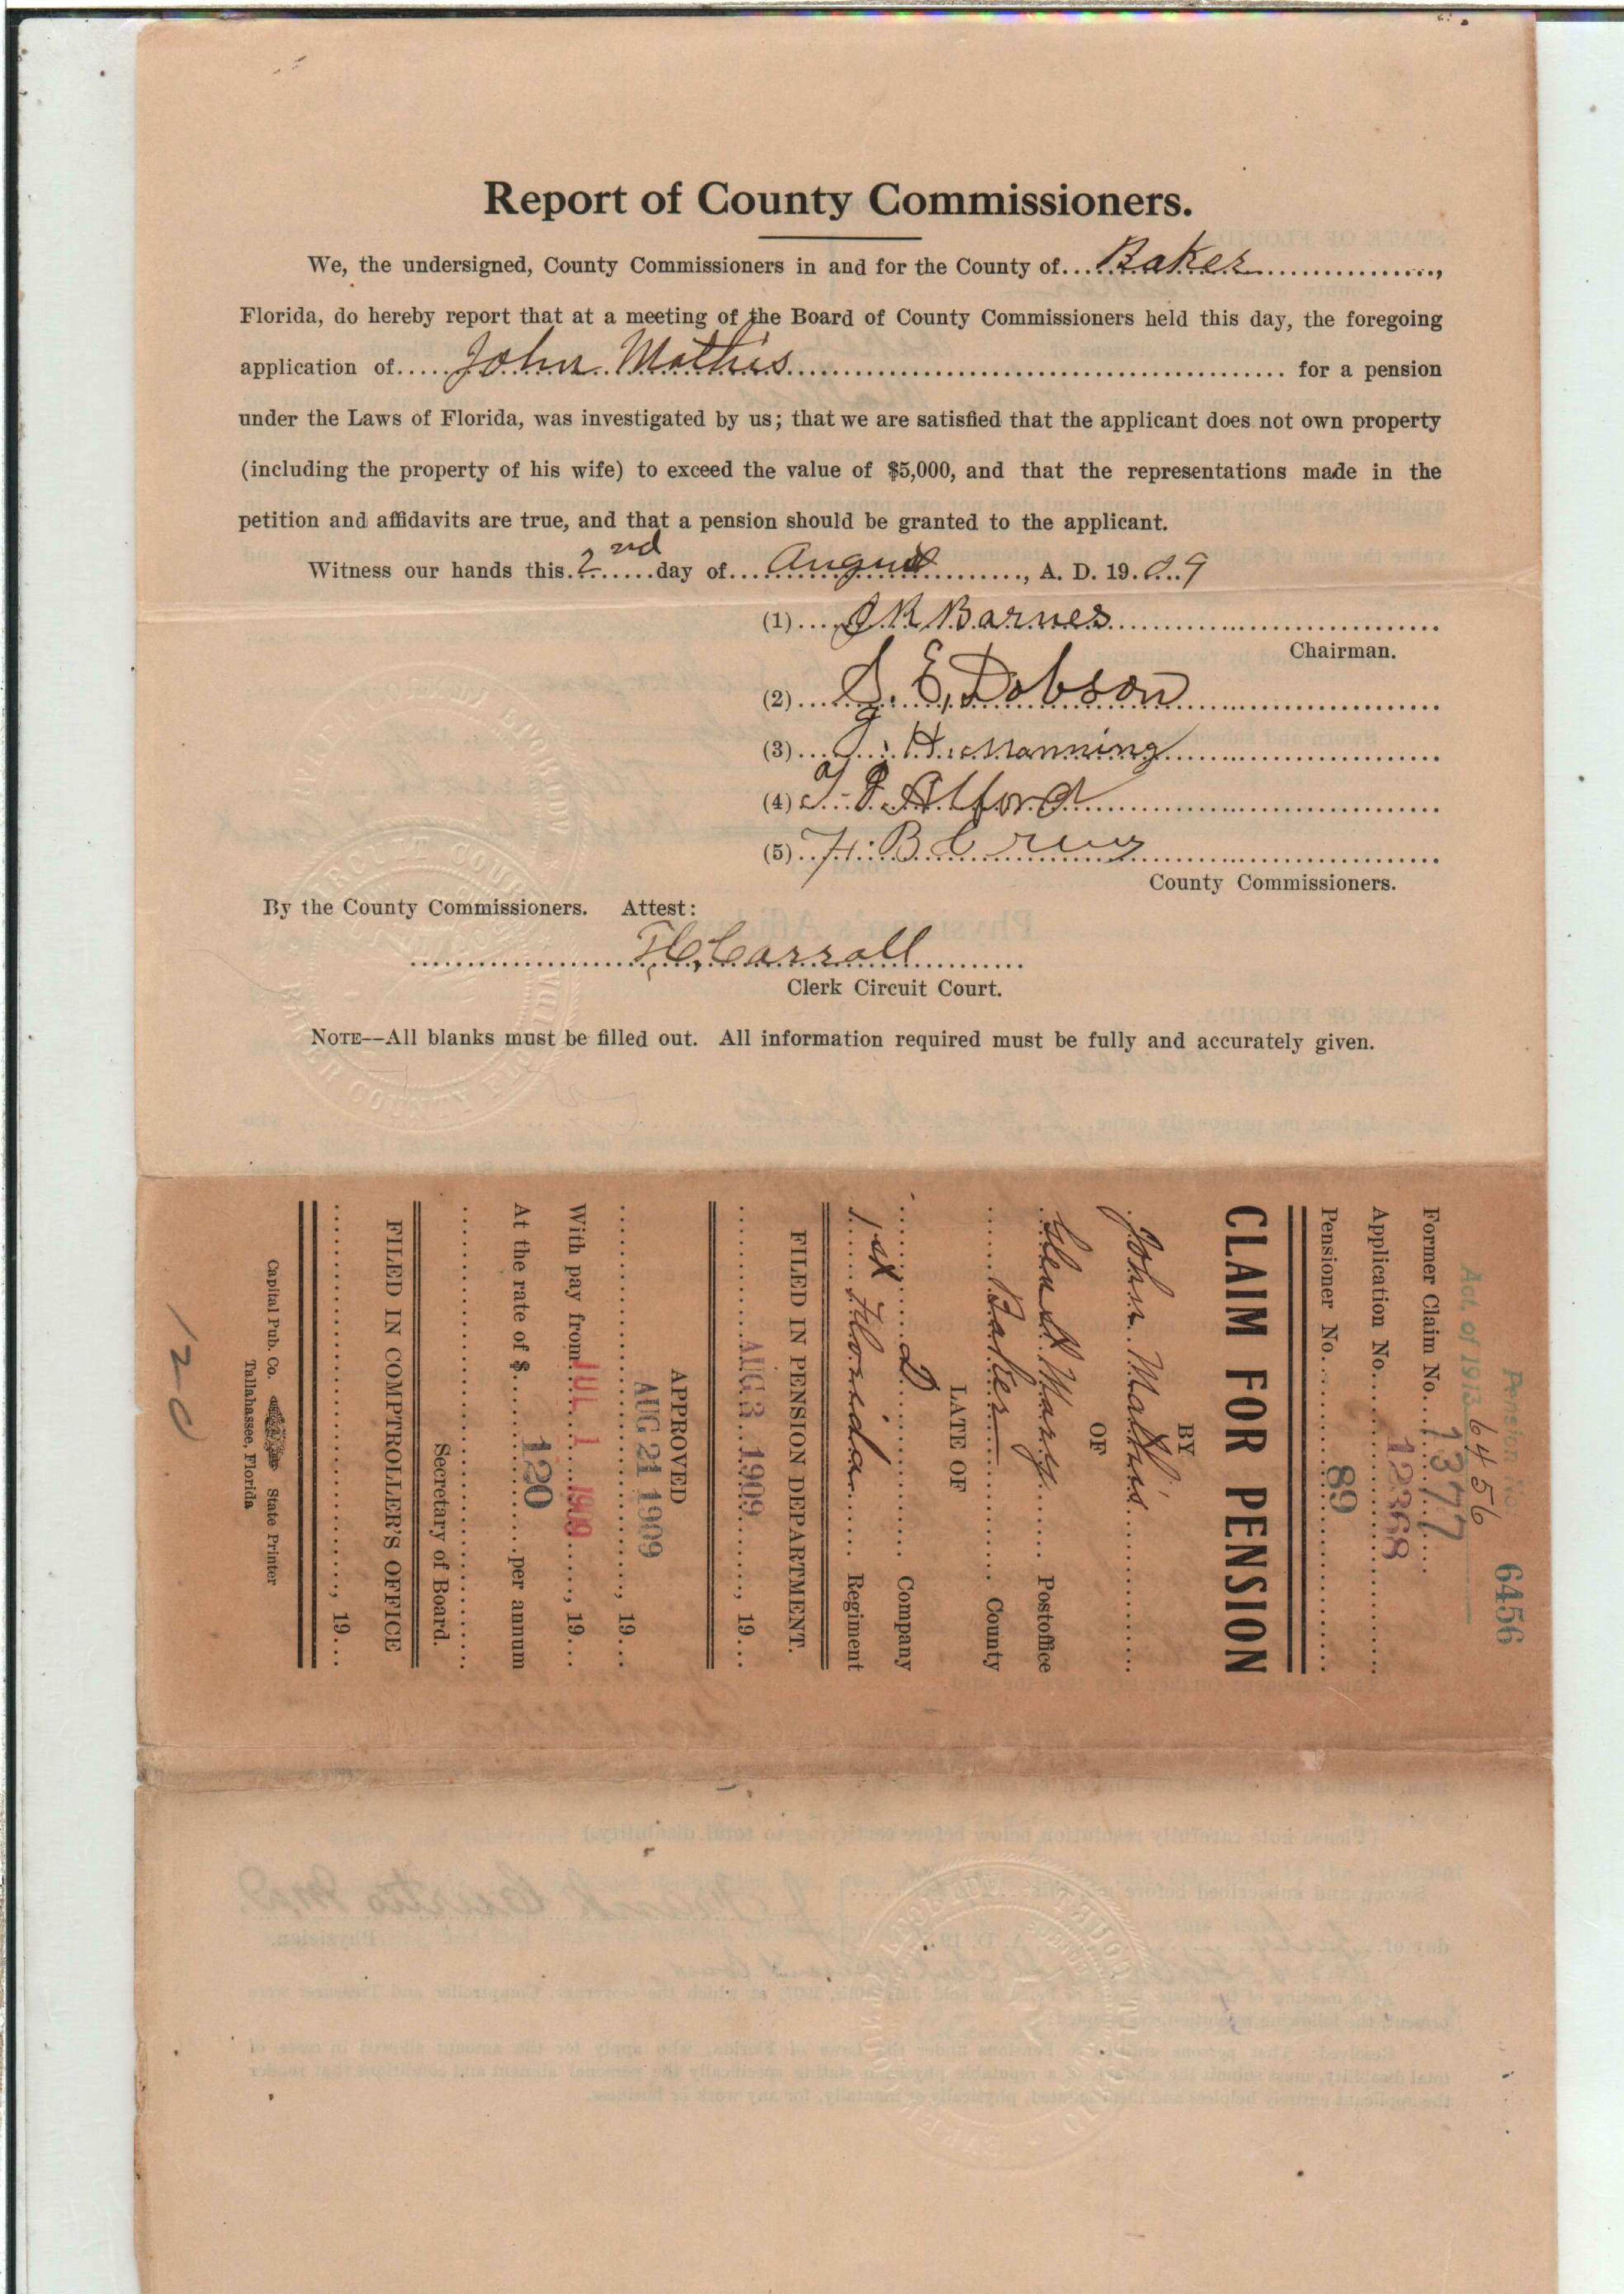 Report of County Commissioners.
We, the undersigned, County Commissioners in and for the County of....Baker................,
Florida, do hereby report that at a meeting of the Board of County Commissioners held this day, the foregoing
application of.....John Mathis............ for a pension
under the Laws of Florida, was investigated by us; that we are satisfied that the applicant does not own property
(including the property of his wife) to exceed the value of $5,000, and that the representations made in the
petition and affidavits are true, and that a pension should be granted to the applicant.
Witness our hands this 2nd day of August, A. D. 1909
(1) Barnes
Chairman.
(2) S. E. Dobson
(3) J. H. Manning
(4) Alford
(5)
County Commissioners.
By the County Commissioners. Attest:
Carroll
Clerk Circuit Court.
NOTE--All blanks must be filled out. All information required must be fully and accurately given.
Pension No. 6456
Act of 1913 6456
Former Claim No. 1377
Application No. 12368
Pensioner No. 89
CLAIM FOR PENSION
BY
John Mathis
OF
Glen St Mary Postoffice
Baker County
LATE OF
D Company
1st Florida Regiment
FILED IN PENSION DEPARTMENT.
AUG 3 1909, 19...
APPROVED
AUG 21 1909, 19...
With pay from JUL 1 1909, 19...
At the rate of $ 120 per annum
Secretary of Board.
FILED IN COMPTROLLER'S OFFICE
, 19...
Capital Pub. Co. State Printer
Tallahassee, Florida
120